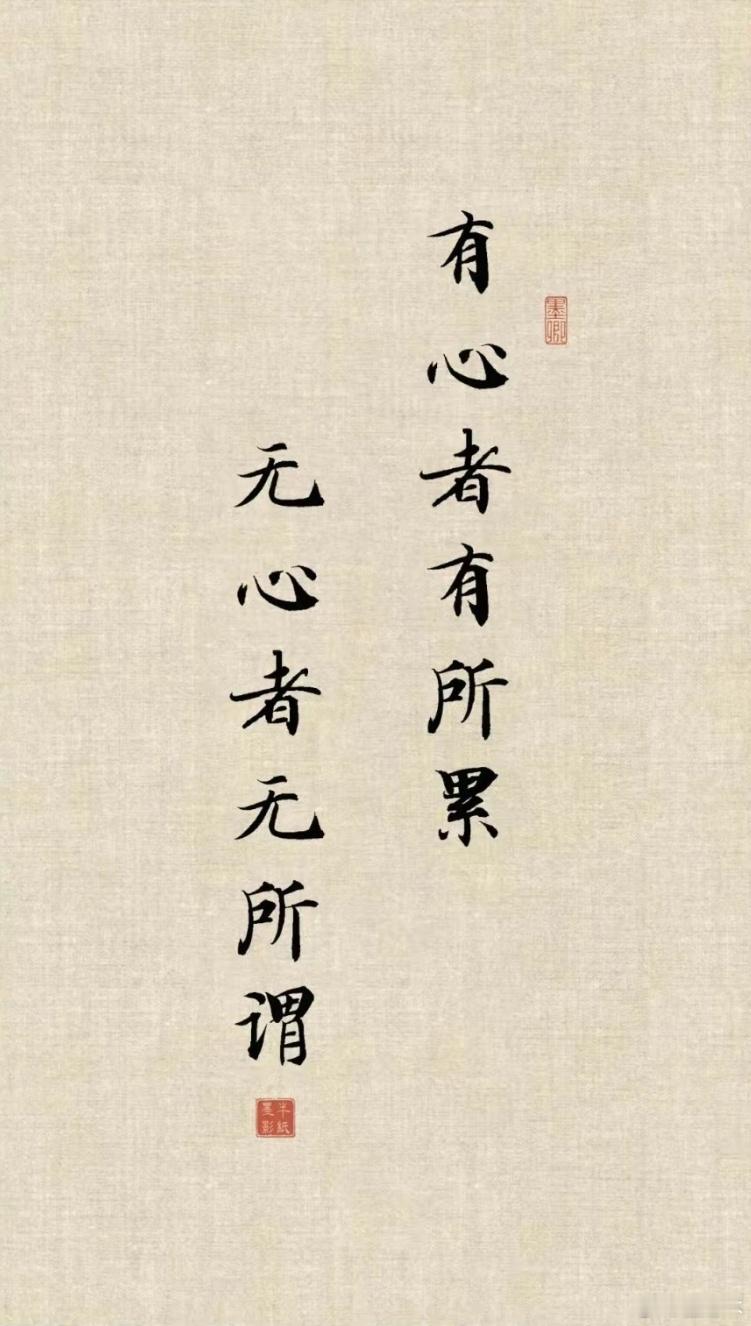 有心者有所累
无心者无所谓
墨卿
半纸墨影